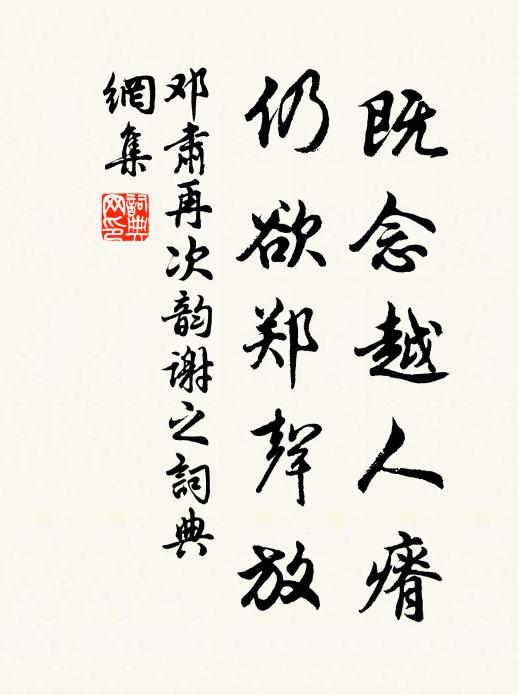 既念越人瘠
仍欲郑聲放
邓肃再次韵谢之詞典
網集
詞典
网印